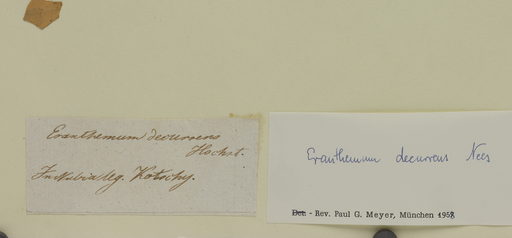 Eranthemum decurrens
Hochst.
In Nubia leg. Kotschy.
Eranthemum decurrens Nees
Det. - Rev. Paul G. Meyer, München 1958